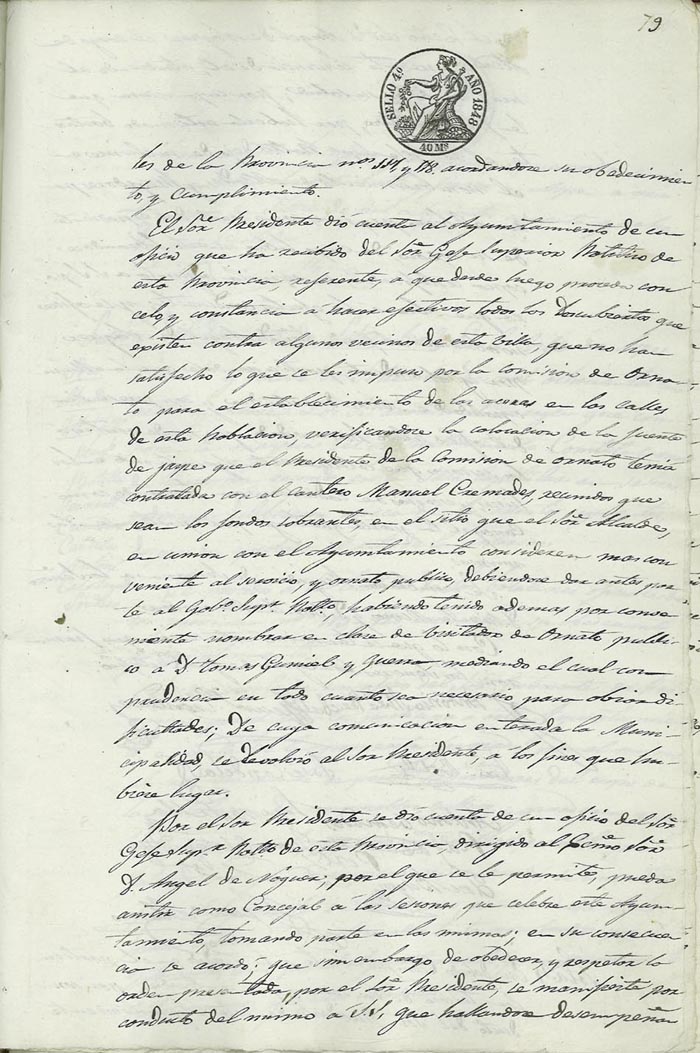 79
SELLO 4º AÑO 1848
40 Ms
les de la Provincia nos. y 118. acordandose su obedecimien
to, y cumplimiento.
El Sor. Presidente dió cuenta al Ayuntamiento de un
oficio que ha recibido del Sor. Gefe Superior Politico de
esta Provincia, referente, a que desde luego proceda con
celo, y constancia a hacer efectivos todos los Descubiertos que
existen contra algunos vecinos de esta Villa, que no han
satisfecho lo que se les impuso por la Comision de Orna
to para el establecimiento de las aceras en las calles
de esta Poblacion, verificandose la colocacion de la fuente
de jaspe que el Presidente de la Comision de Ornato tenia
contratada con el cantero Manuel Cremades, reunidos que
sean los fondos sobrantes, en el sitio que el Sor. Alcalde,
en union con el Ayuntamiento consideren mas con
veniente al servicio, y ornato publico, debiendose dar antes par
te al Gobo. Supr. Polto, habiendo tenido ademas por conve
niente nombrar en clase de Visitador de Ornato publi
co a D. Tomas Gumiel y Guerra mediando el cual con
prudencia en todo cuanto sea necesario para obviar di-
ficultades; De cuya comunicacion enterada la Muni-
cipalidad, se devolvió al Sor Presidente, a los fines que hu-
biere lugar.
Por el Sor Presidente se dió cuenta de un oficio del Sor.
Gefe Supr. Polto de esta Provincia, dirigido al Ecsmo Sor.
D. Angel de Noguer, por el que se le permite, pueda
asistir como Concejal a las Sesiones que celebre este Ayun-
tamiento, tomando parte en las mismas; en su consecuen
cia se acordó; que sin embargo de obedecer, y respetar la
orden presentada, por el Sor. Presidente, se manifieste por
conducto del mismo a S.S., que hallandose desempeñan